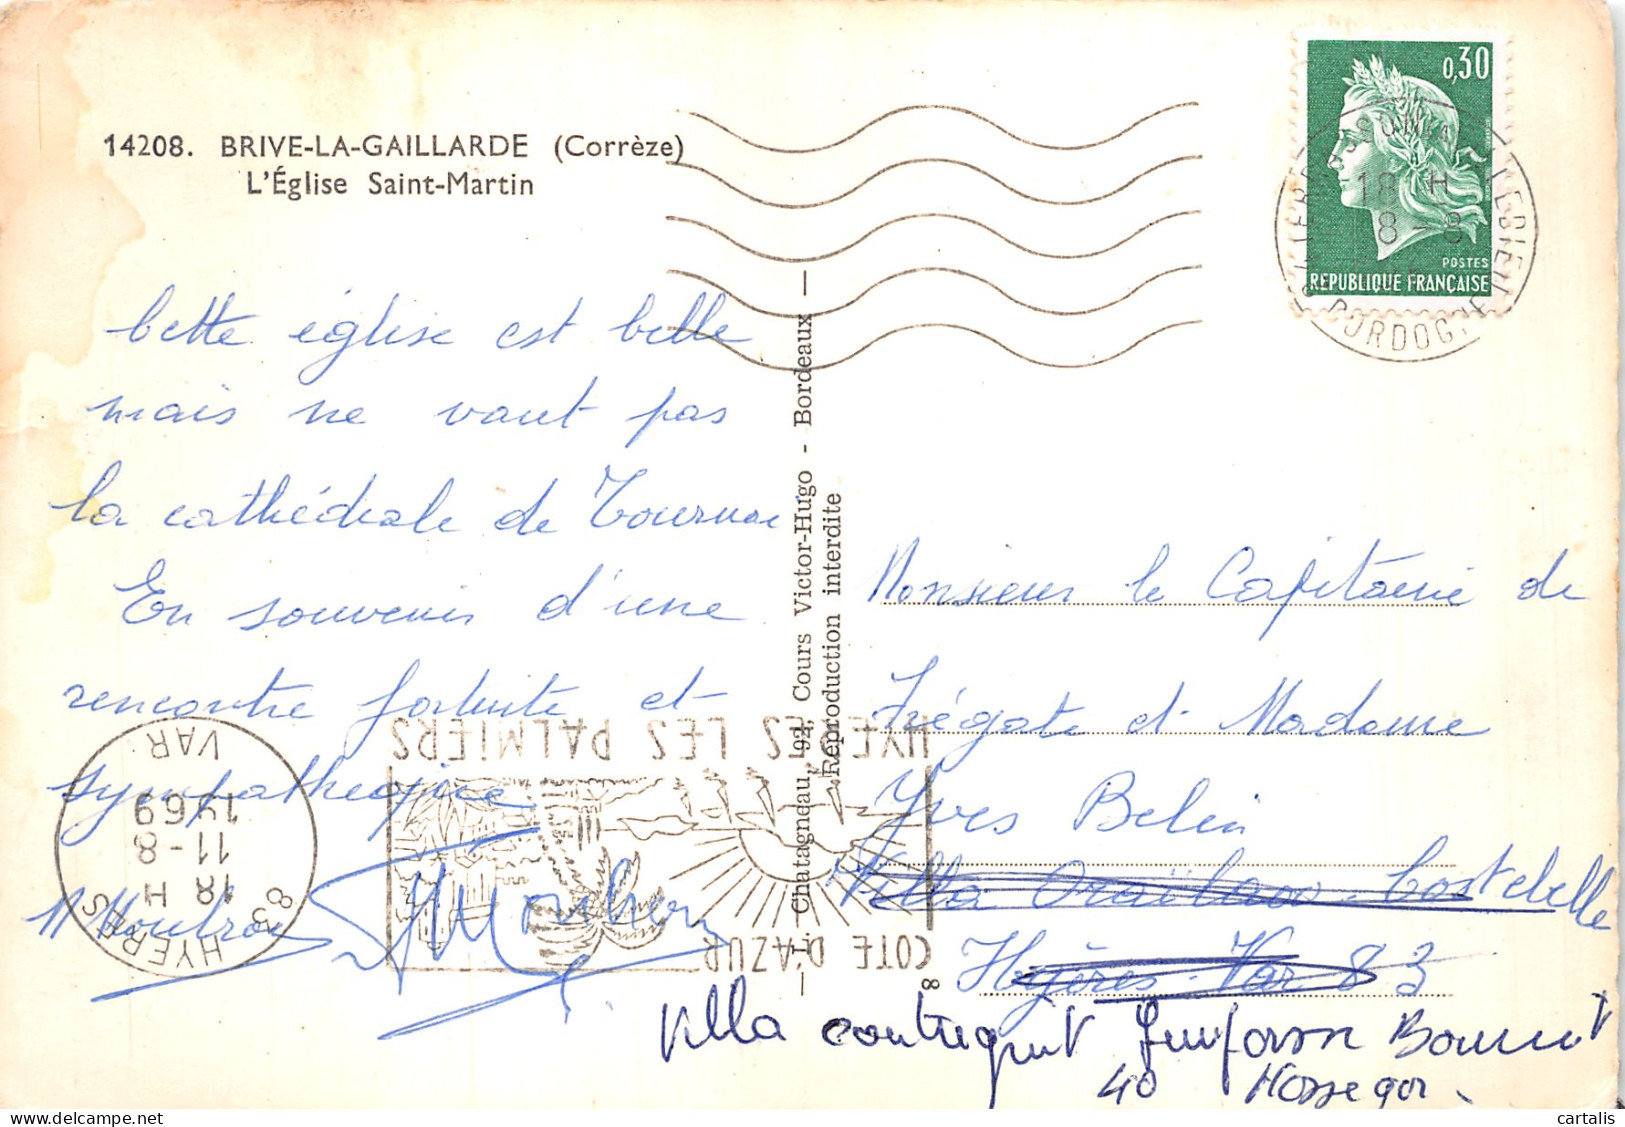 14208. BRIVE-LA-GAILLARDE (Corrèze)
L'Église Saint-Martin
Cette église est belle
mais ne vaut pas
la cathédrale de Tournai
En souvenir d'une
rencontre fortuite et
sympathique
0,30
POSTES
REPUBLIQUE FRANÇAISE
18 H
8-8
DORDOGNE
Chatagneau, 92, Cours Victor-Hugo - Bordeaux
Reproduction interdite
Monsieur le Capitaine de
Frégate et Madame
Yves Belin
Villa Costebelle
Hyères Var 83
Villa
40 Hossegor
HYERES LES PALMIERS
COTE D'AZUR
83 HYERES
18 H
11-8
1969
VAR
8
cartalis